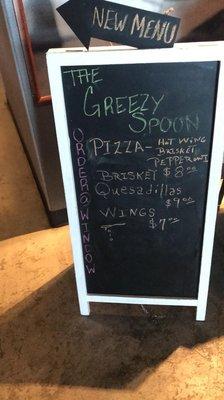 NEW MENU
THE
GREEZY
SPOON
PIZZA - HOT WING
BRISKET
PEPPERONI
BRISKET $8.00
Quesadillas
$9.00
WINGS
$7.00
ORDER @ WINDOW